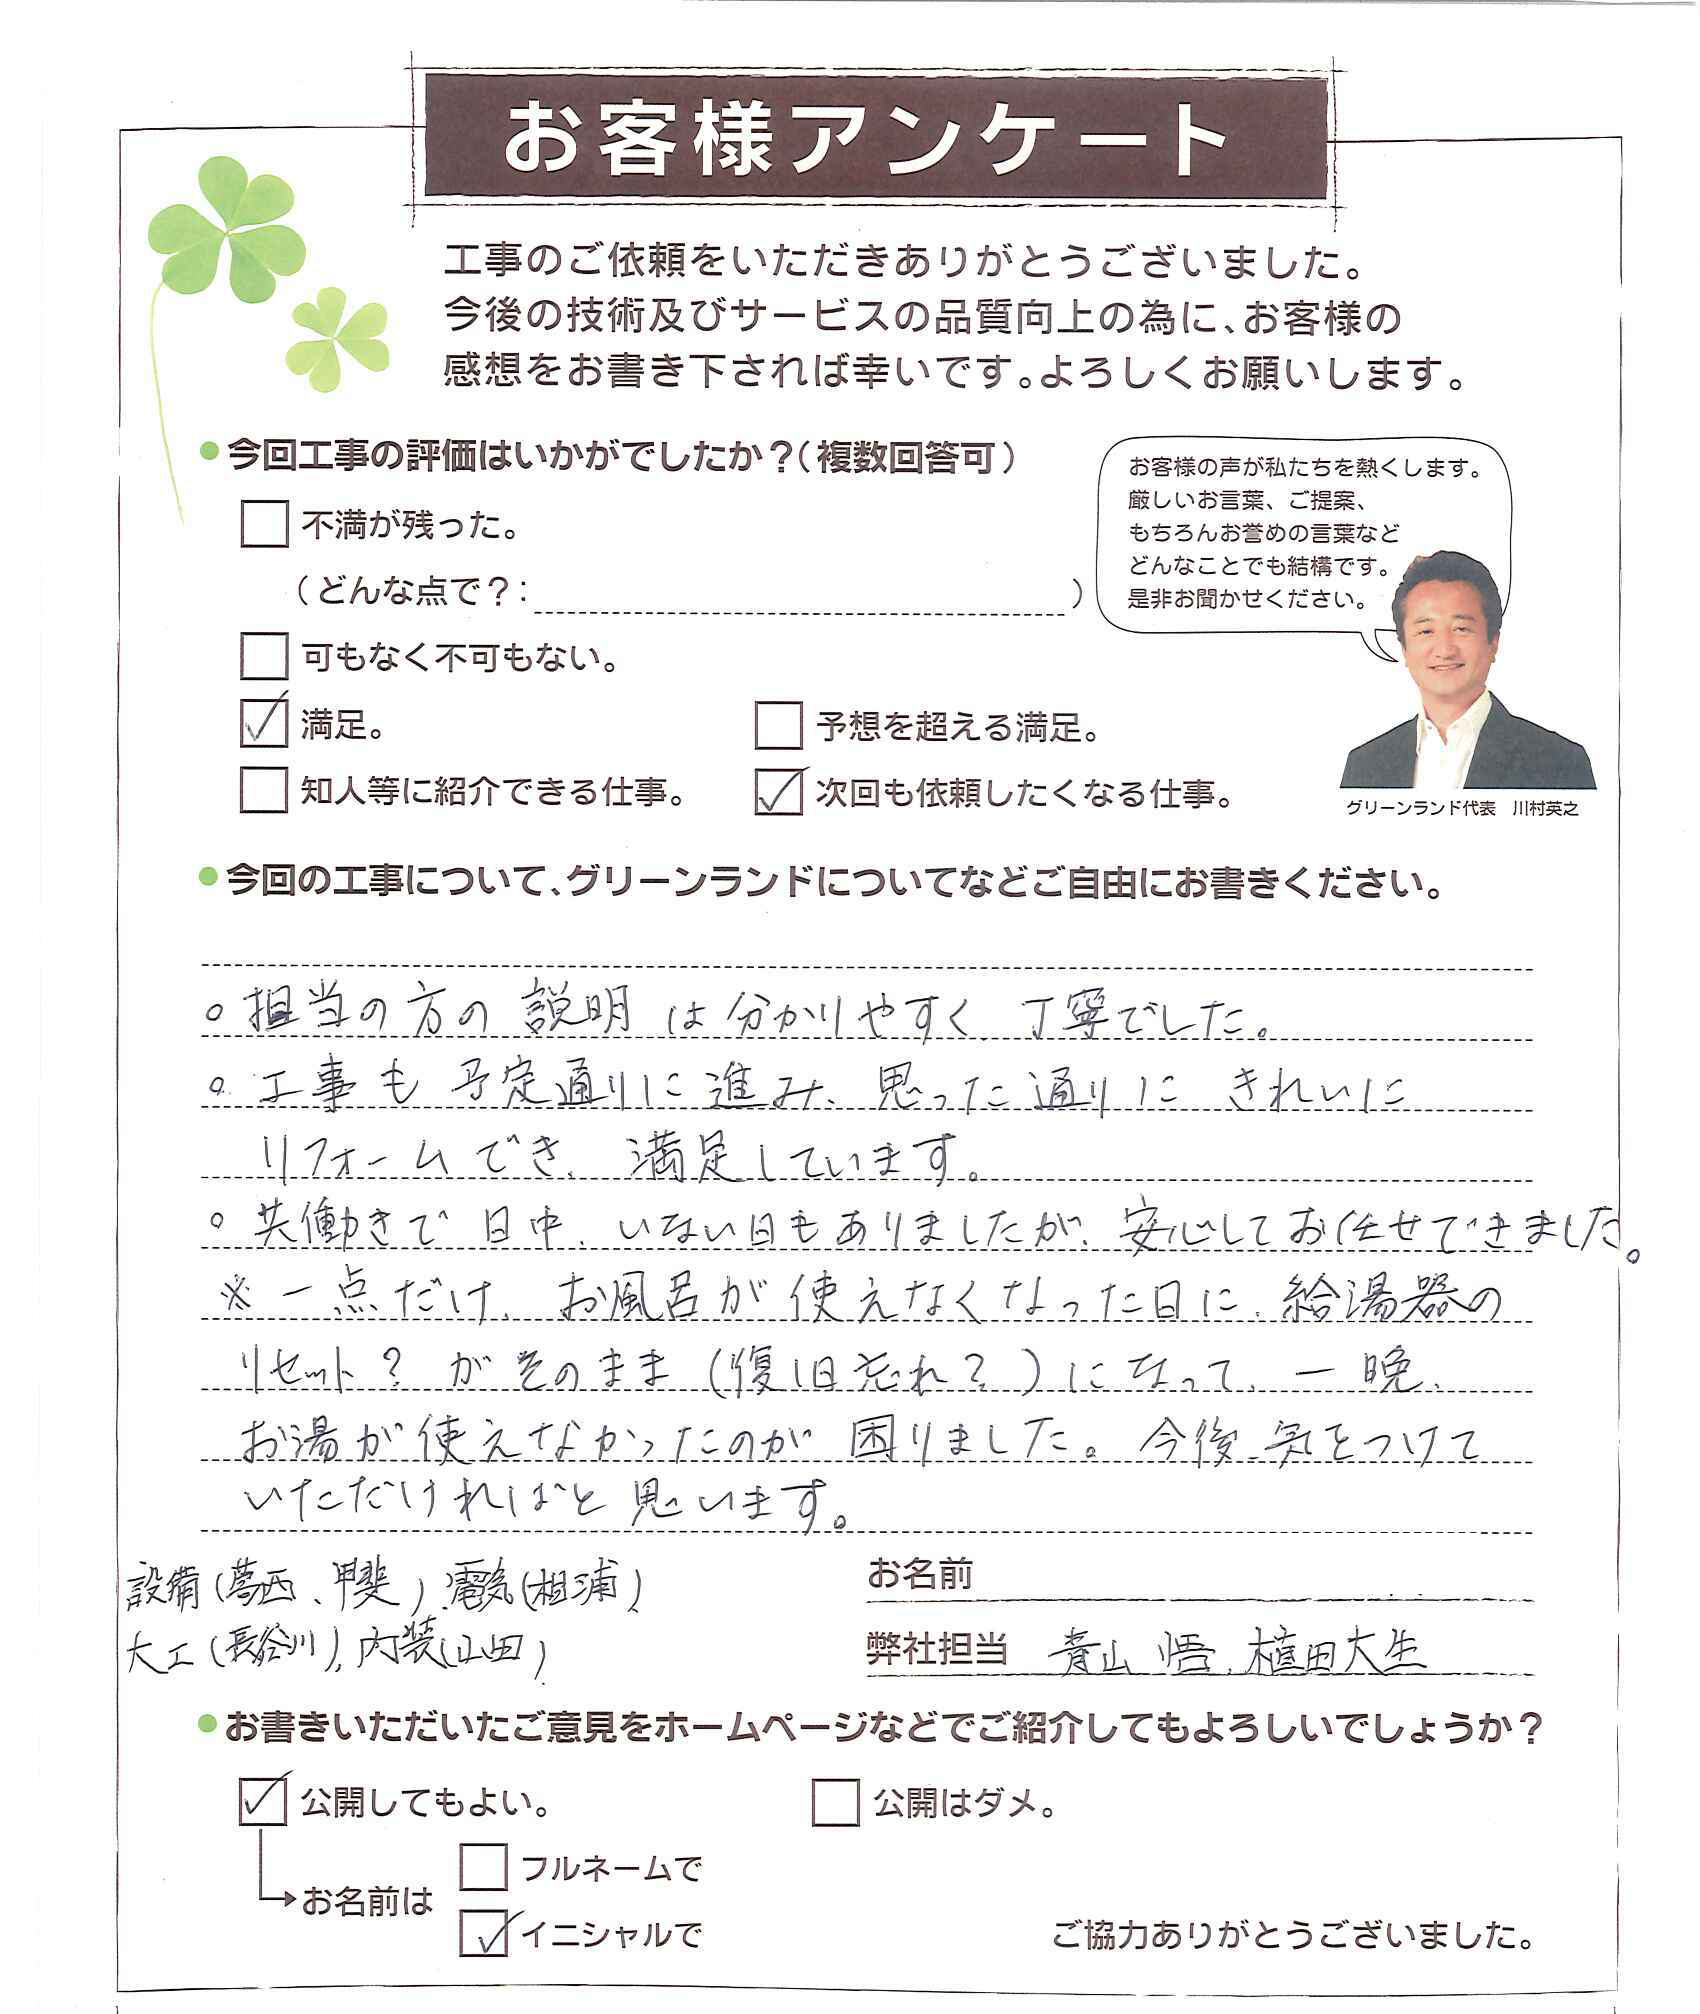 お客様アンケート
工事のご依頼をいただきありがとうございました。
今後の技術及びサービスの品質向上の為に、お客様の
感想をお書き下されば幸いです。よろしくお願いします。
●今回工事の評価はいかがでしたか？（複数回答可）
お客様の声が私たちを熱くします。
厳しいお言葉、ご提案、
もちろんお誉めの言葉など
どんなことでも結構です。
是非お聞かせください。
グリーンランド代表　川村英之
□ 不満が残った。
（どんな点で？：　　　）
□ 可もなく不可もない。
☑ 満足。　□ 予想を超える満足。
□ 知人等に紹介できる仕事。　☑ 次回も依頼したくなる仕事。
●今回の工事について、グリーンランドについてなどご自由にお書きください。
○担当の方の説明は分かりやすく、丁寧でした。
○工事も予定通りに進み、思った通りにきれいに
リフォームでき、満足しています。
○共働きで日中、いない日もありましたが、安心してお任せできました。
※一点だけ、お風呂が使えなくなった日に、給湯器の
リセット？がそのまま（復旧忘れ？）になって、一晩、
お湯が使えなかったのが困りました。今後、気をつけて
いただければと思います。
設備（葛西、甲斐）、電気（相浦）、
大工（長谷川）、内装（山田）
お名前
弊社担当　青山 悟、植田大生
●お書きいただいたご意見をホームページなどでご紹介してもよろしいでしょうか？
☑ 公開してもよい。　□ 公開はダメ。
→お名前は　□ フルネームで
☑ イニシャルで
ご協力ありがとうございました。